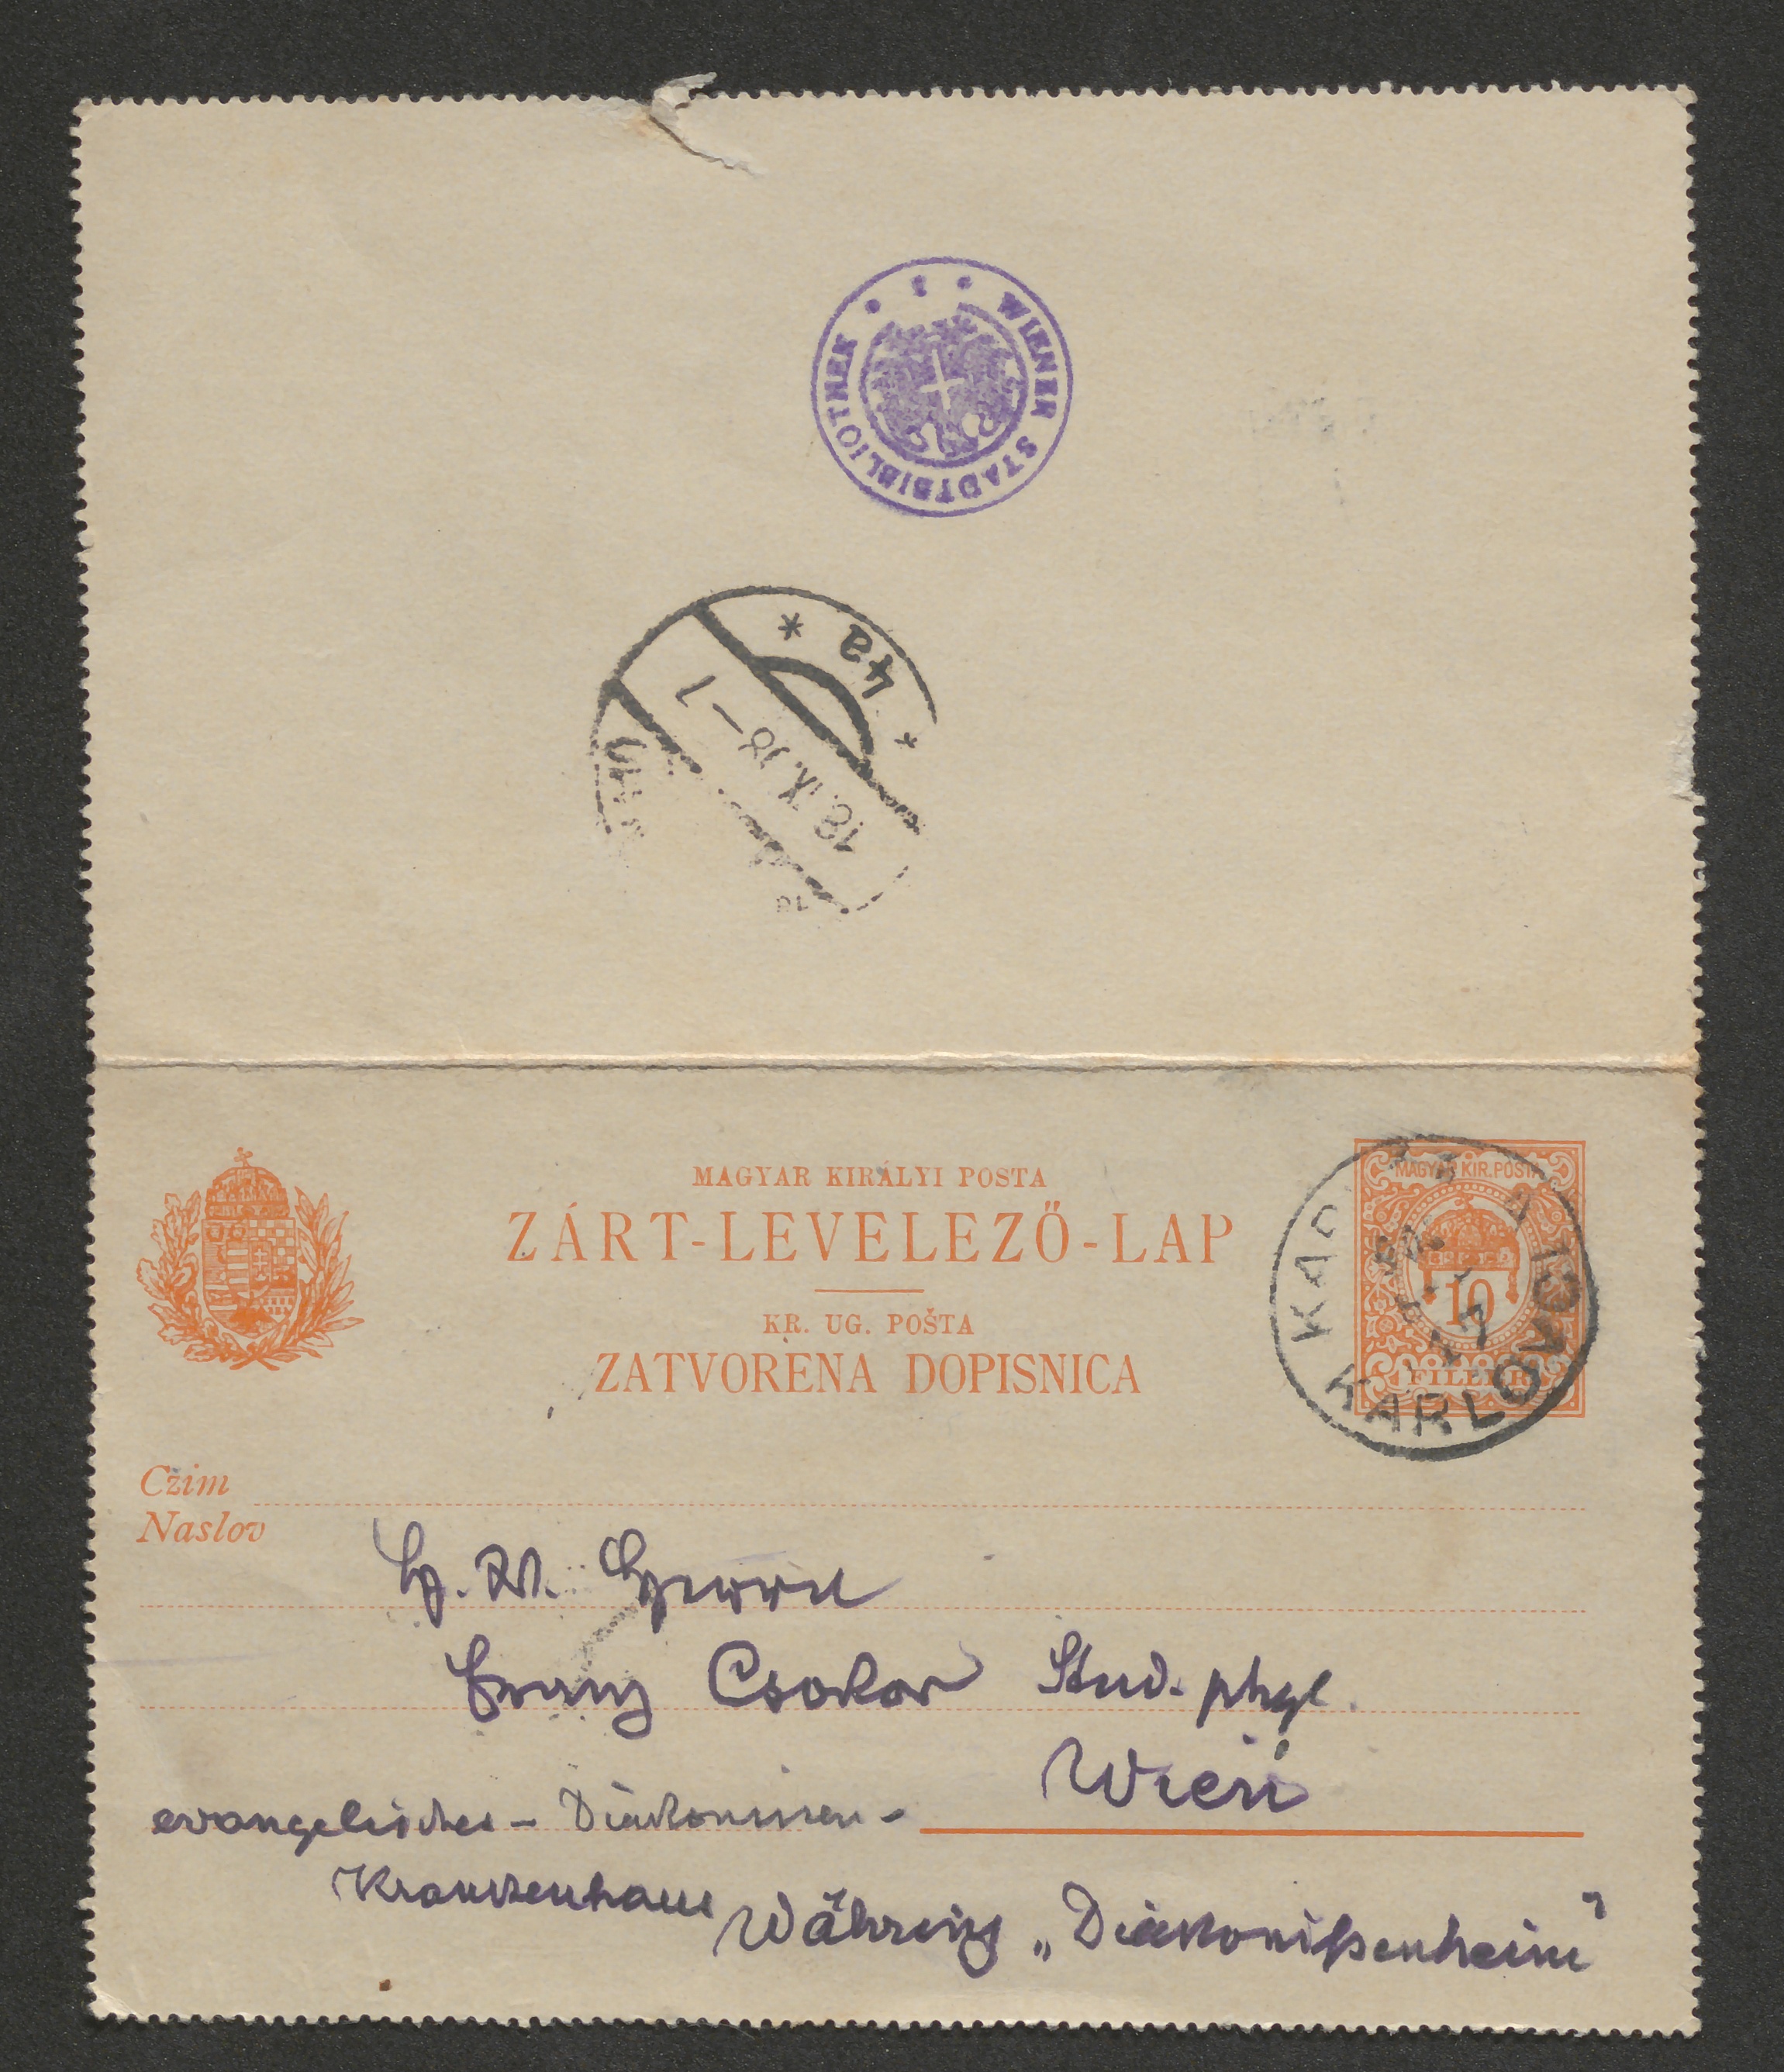 WIENER STADTBIBLIOTHEK
* 4a *
18.IX.08—1
MAGYAR KIRÁLYI POSTA
ZÁRT-LEVELEZŐ-LAP
KR. UG. POŠTA
ZATVORENA DOPISNICA
MAGYAR KIR. POSTA
10
FILLÉR
KARLOVO
Czim
Naslov
Herrn
Franz Csokor Stud. phil.
Wien
evangelisches - Diakonissen-
Krankenhaus
Währing „Diakonißenheim"